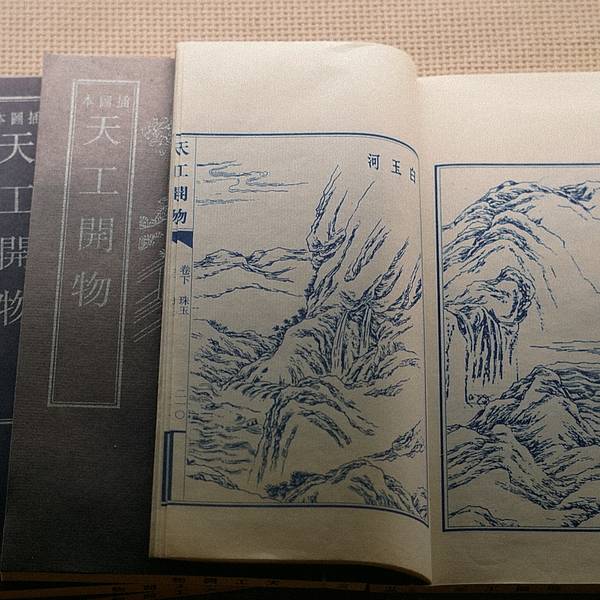 插圖本
天工開物
插圖本
天工開物
白玉河
天工開物
卷下 珠玉